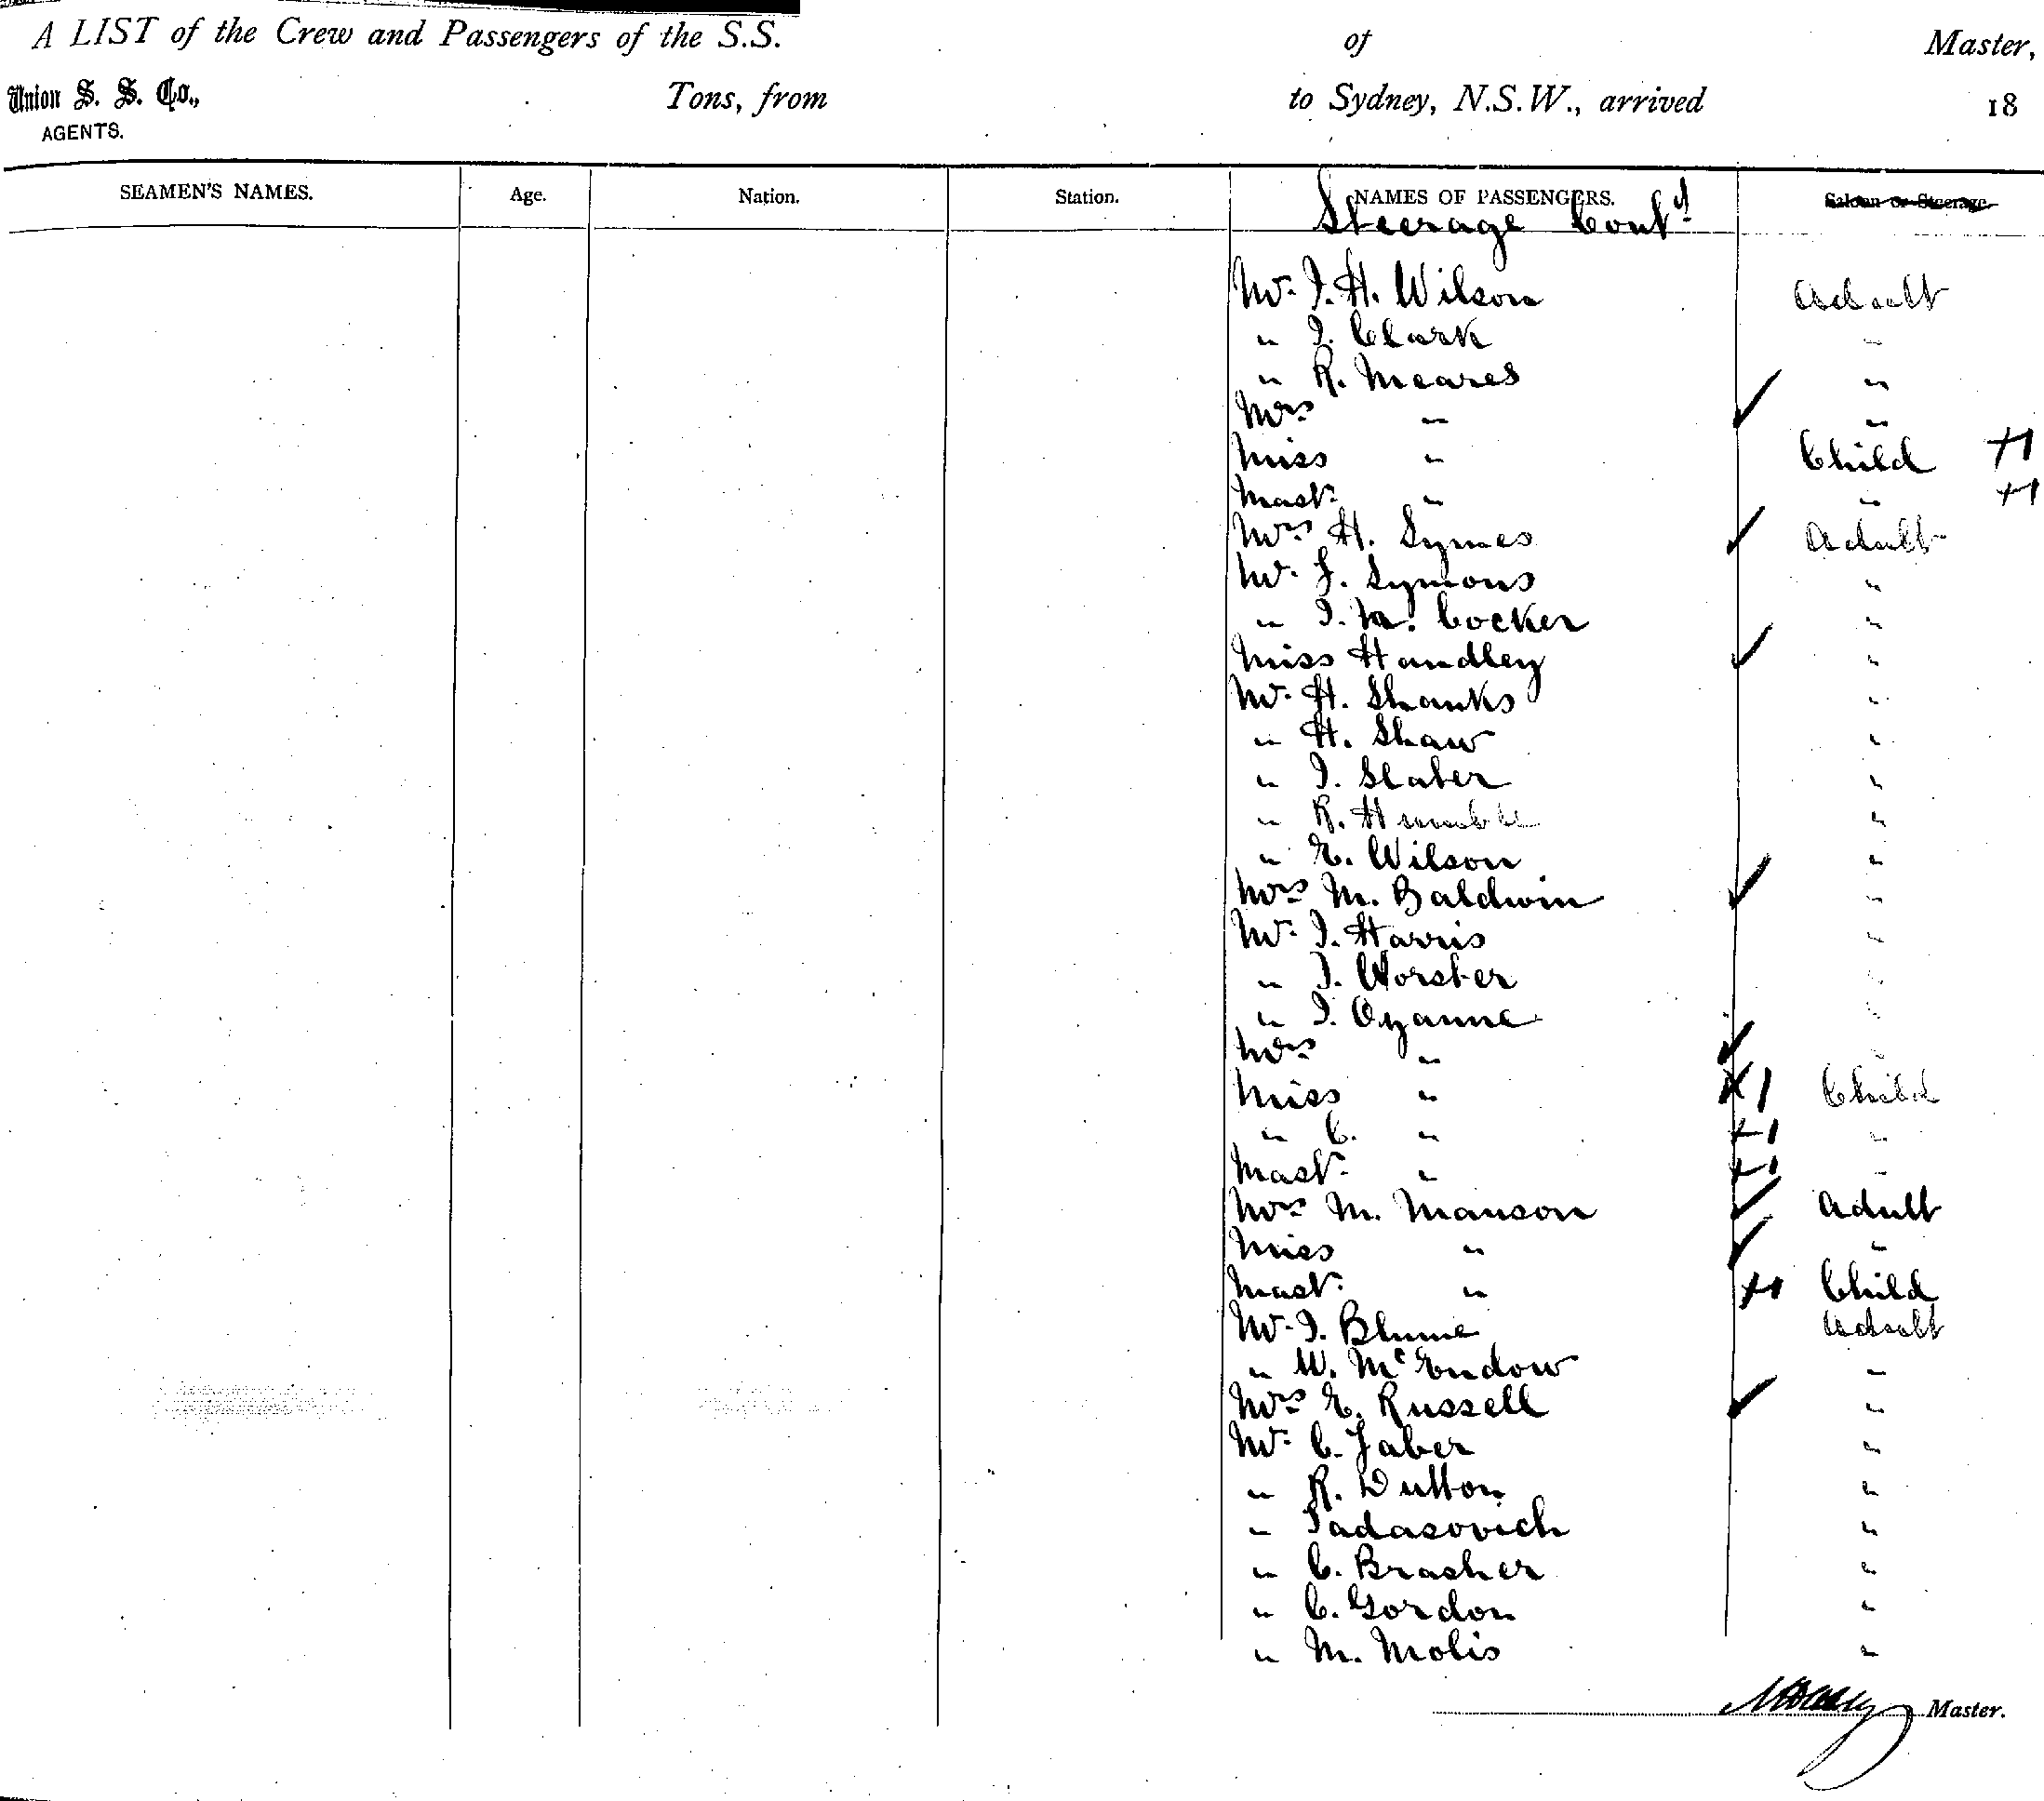 A LIST of the Crew and Passengers of the S.S. of Master,
Union S. S. Co., Tons, from to Sydney, N.S.W., arrived 18
AGENTS.
SEAMEN'S NAMES. Age. Nation. Station. NAMES OF PASSENGERS. Saloon or Steerage.
Steerage Contd
Mr. J. H. Wilson Adult
" J. Clark "
" R. Meares "
Mrs " ✓ "
Miss " Child +1
Mast. " " +1
Mrs H. Symes ✓ Adult
Mr. F. Symons "
" J. M. Cocker "
Miss Handley ✓ "
Mr. H. Shanks "
" H. Shaw "
" J. Slater "
" R. Humble "
" E. Wilson "
Mrs M. Baldwin ✓ "
Mr. J. Harris "
" J. Worster "
" J. Ozanne "
Mrs " ✓ "
Miss " X1 Child
" C. " +1 "
Mast. " +1 "
Mrs M. Manson ✓ Adult
Miss " ✓ "
Mast. " +1 Child
Mr. J. Blume Adult
" W. McEndow "
Mrs E. Russell ✓ "
Mr. C. Faber "
" R. Dutton "
" Tadasovich "
" C. Brasher "
" C. Gordon "
" M. Molis "
Master.